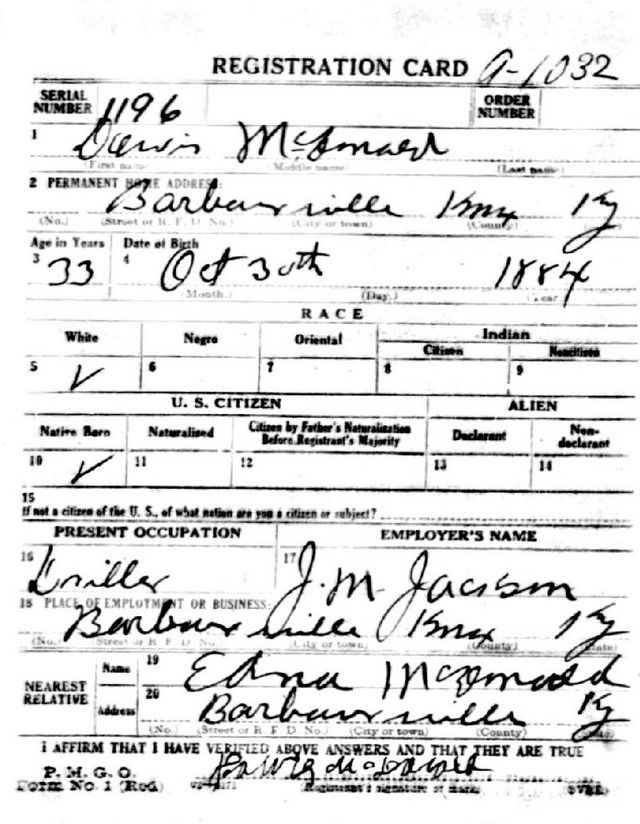 REGISTRATION CARD A-1032
SERIAL NUMBER 1196 ORDER NUMBER
1 Davis McDonald
(First name) (Middle name) (Last name)
2 PERMANENT HOME ADDRESS:
Barbourville Knox Ky
(No.) (Street or R. F. D. No.) (City or town) (County)
Age in Years Date of Birth
3 33 4 Oct 30th 1884
(Month.) (Day.) (Year)
RACE
White Negro Oriental Indian
Citizen Noncitizen
5 ✓ 6 7 8 9
U. S. CITIZEN ALIEN
Native Born Naturalized Citizen by Father's Naturalization Before Registrant's Majority Declarant Non-declarant
10 ✓ 11 12 13 14
15
If not a citizen of the U. S., of what nation are you a citizen or subject?
PRESENT OCCUPATION EMPLOYER'S NAME
16 Driller 17 J. M. Jackson
18 PLACE OF EMPLOYMENT OR BUSINESS:
Barbourville Knox Ky
(No.) Street or R F D No.) (City or town) (County) (State)
NEAREST RELATIVE Name 19 Edna McDonald
Address 20 Barbourville Ky
(No.) (Street or R F D No.) (City or town) (County)
I AFFIRM THAT I HAVE VERIFIED ABOVE ANSWERS AND THAT THEY ARE TRUE
P. M. G. O.
Form No. 1 (Red) McDonald
(Registrant's signature or mark) (OVER)